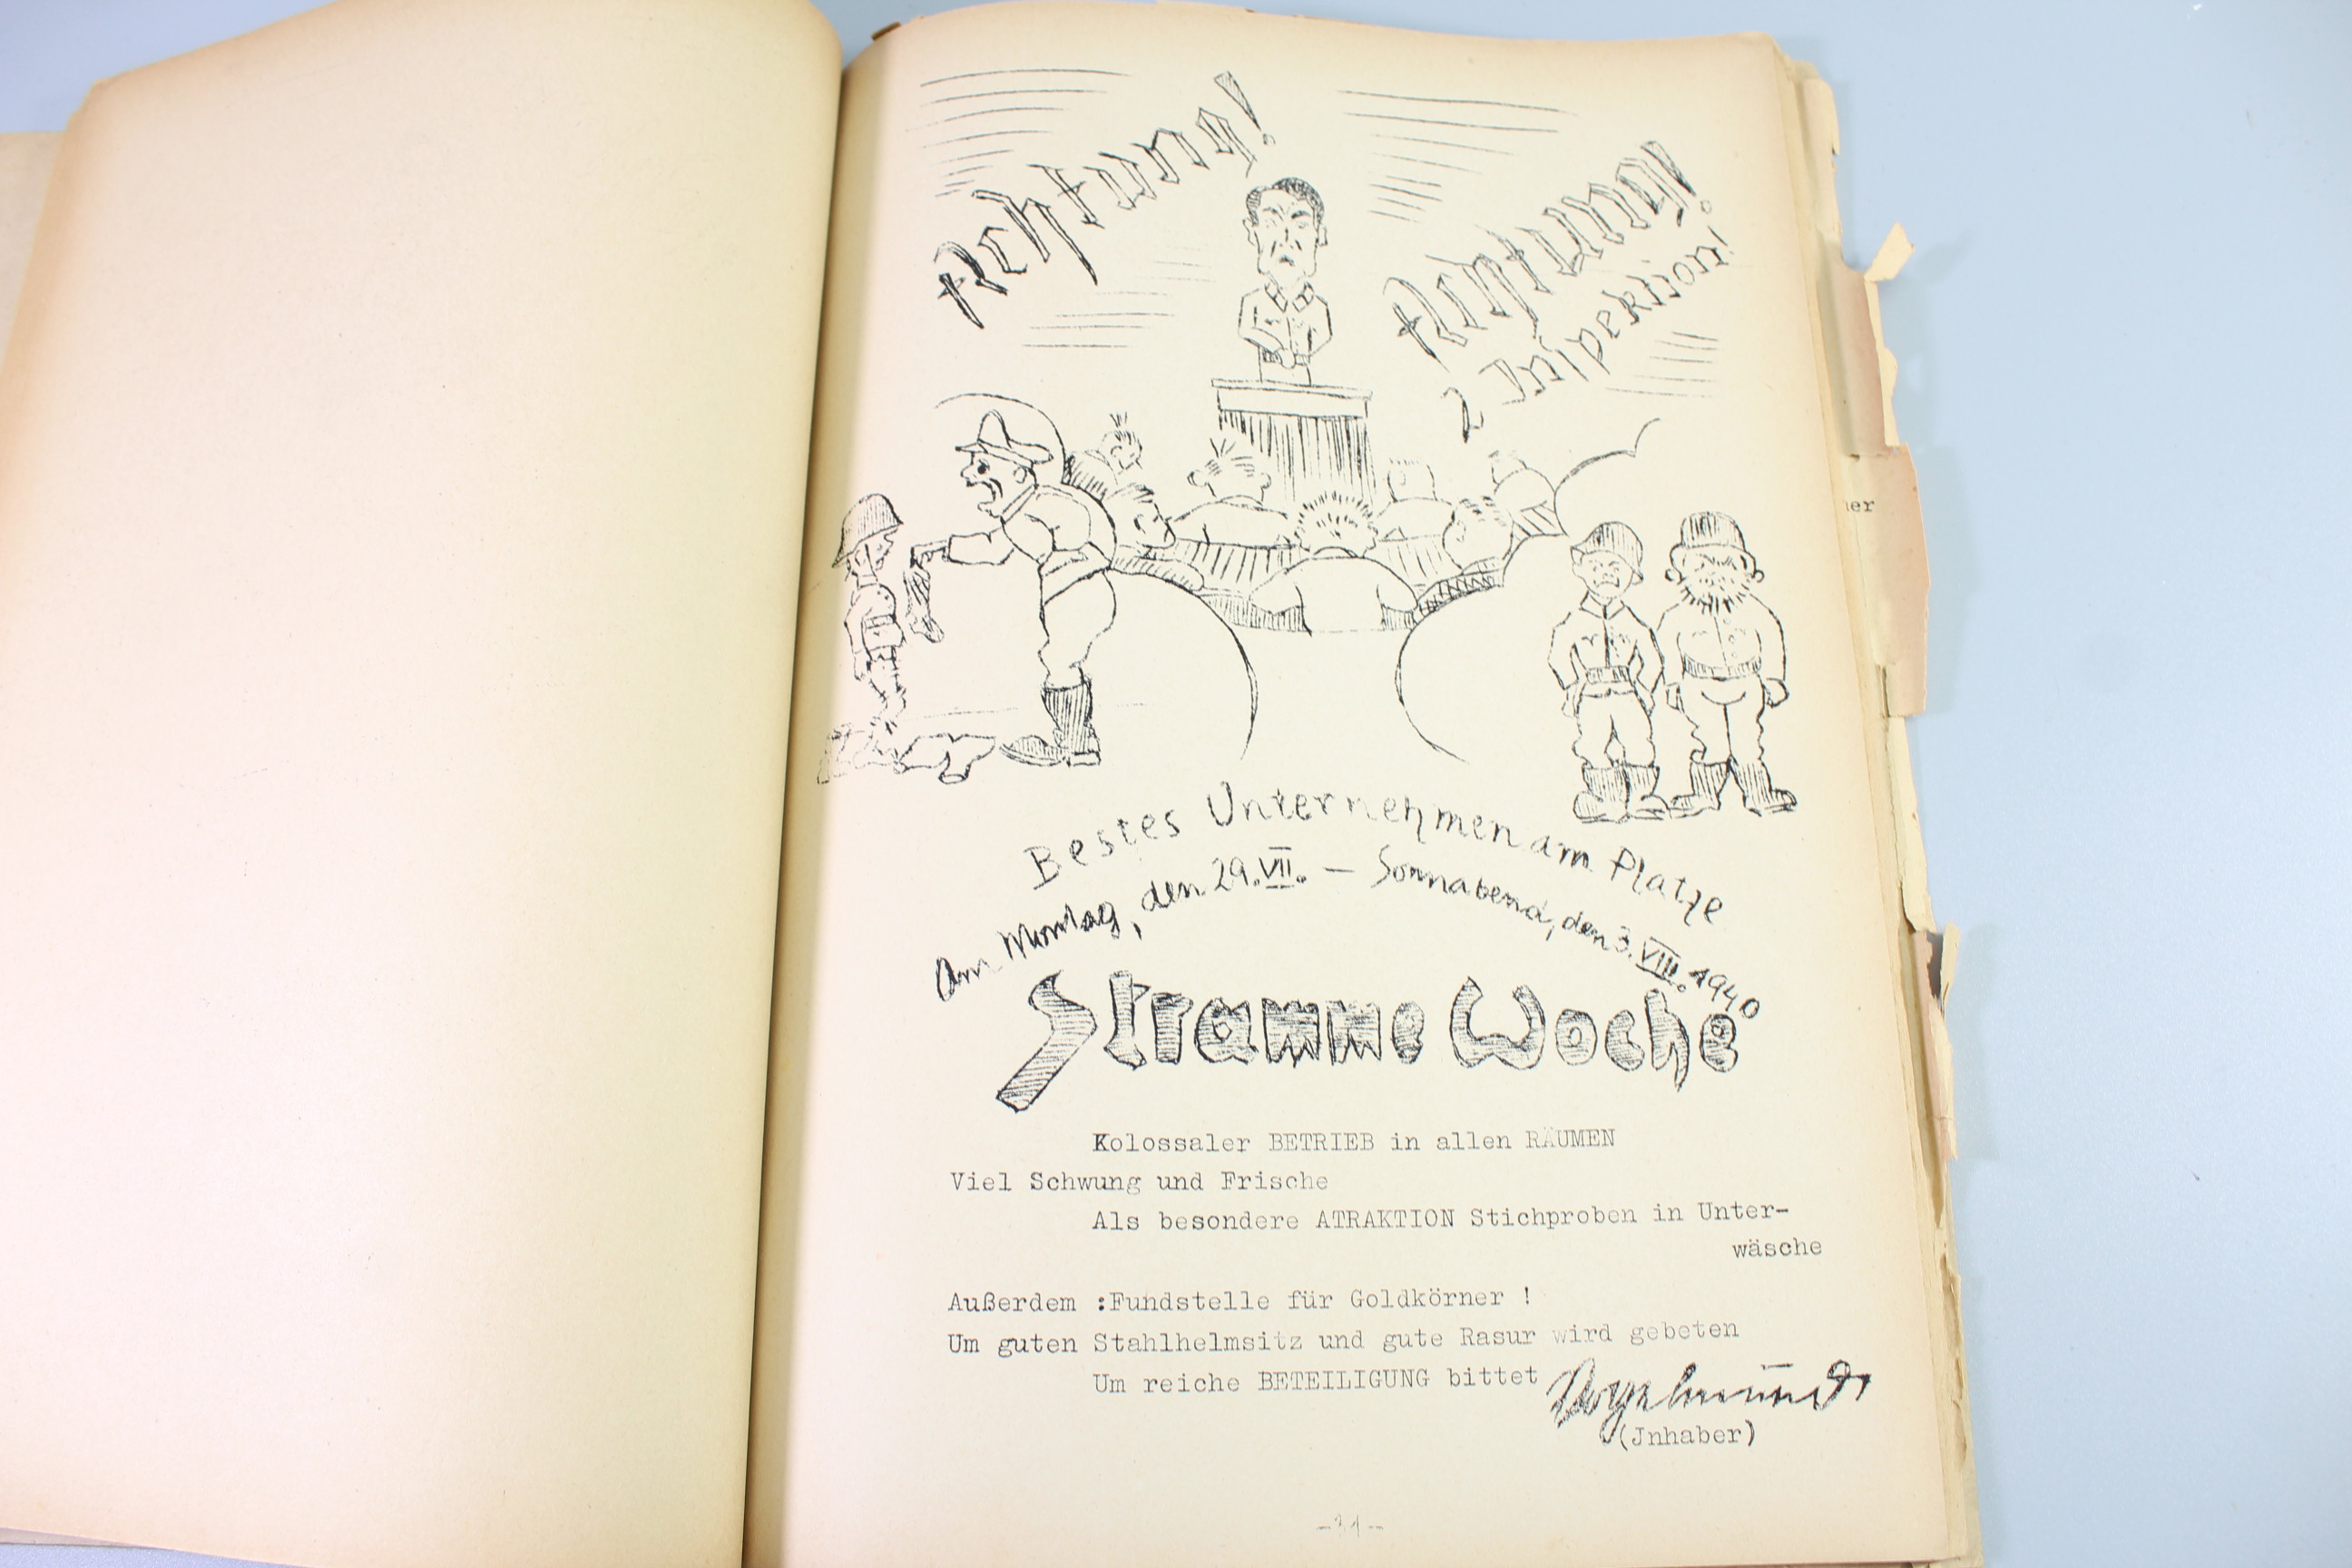 Achtung!
Achtung!
2 Inspektion!
Bestes Unternehmen am Platze
Am Montag, den 29.VII. — Sonnabend, den 3.VIII. 1940
Stramme Woche
Kolossaler BETRIEB in allen RÄUMEN
Viel Schwung und Frische
Als besondere ATRAKTION Stichproben in Unter-
wäsche
Außerdem :Fundstelle für Goldkörner !
Um guten Stahlhelmsitz und gute Rasur wird gebeten
Um reiche BETEILIGUNG bittet
(Jnhaber)
-31-